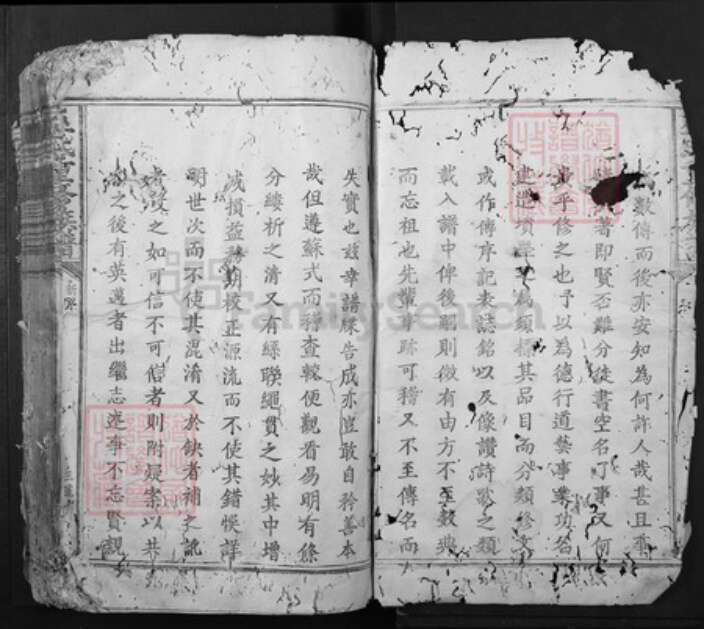 數傳而後亦安知為何許人哉甚且尊
著即賢否難分徒書空名丁事又何
乎修之也予以為德行道藝事業功名
為類標其品目而分類修文
或作傳序記表誌銘以及像讚詩歌之類
載入譜中俾後嗣則傚有由方不至數典
而忘祖也先輩章跡可稽又不至傳名而
失實也玆幸譜牒告成亦豈敢自矜善本
哉但遵蘇式而稽查較便觀看易明有條
分縷析之清又有絲聯繩貫之妙其中增
減損益務期按正源流而不使其錯悞詳
明世次而不使其混淆又於缺者補之訛
者 之如可信不可信者則附疑案以共
之後有英邁者出繼志述事不忘賢親
FamilySearch